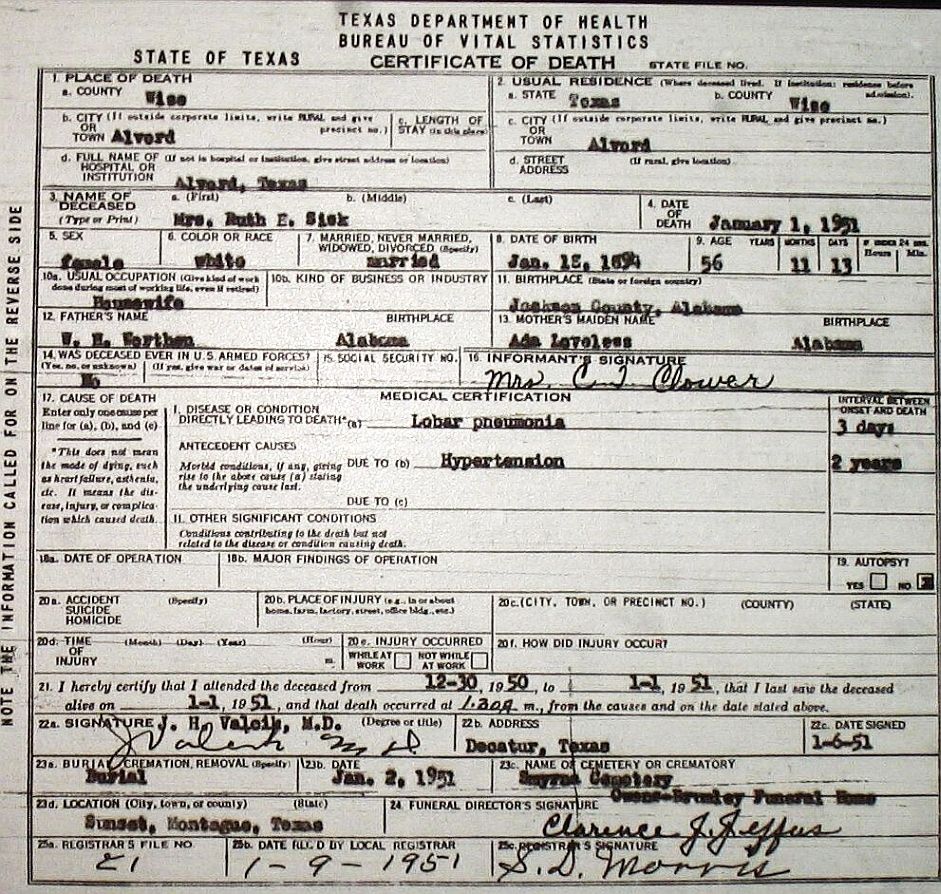 TEXAS DEPARTMENT OF HEALTH
BUREAU OF VITAL STATISTICS
STATE OF TEXAS
CERTIFICATE OF DEATH
STATE FILE NO.
NOTE THE INFORMATION CALLED FOR ON THE REVERSE SIDE
1. PLACE OF DEATH
a. COUNTY
Wise
2. USUAL RESIDENCE (Where deceased lived. If institution: residence before admission).
a. STATE Texas b. COUNTY Wise
b. CITY (If outside corporate limits, write RURAL and give precinct no.)
OR
TOWN Alvord
c. LENGTH OF
STAY (in this place)
c. CITY (If outside corporate limits, write RURAL and give precinct no.)
OR
TOWN Alvord
d. FULL NAME OF (If not in hospital or institution, give street address or location)
HOSPITAL OR
INSTITUTION Alvord, Texas
d. STREET (If rural, give location)
ADDRESS
3. NAME OF a. (First) b. (Middle) c. (Last)
DECEASED
(Type or Print) Mrs. Ruth E. Sisk
4. DATE
OF
DEATH January 1, 1951
5. SEX
female
6. COLOR OR RACE
white
7. MARRIED, NEVER MARRIED,
WIDOWED, DIVORCED (Specify)
married
8. DATE OF BIRTH
Jan. 18, 1894
9. AGE YEARS MONTHS DAYS IF UNDER 24 HRS.
Hours Min.
56 11 13
10a. USUAL OCCUPATION (Give kind of work
done during most of working life, even if retired)
Housewife
10b. KIND OF BUSINESS OR INDUSTRY
11. BIRTHPLACE (State or foreign country)
Jackson County, Alabama
12. FATHER'S NAME BIRTHPLACE
W. H. Worthen Alabama
13. MOTHER'S MAIDEN NAME BIRTHPLACE
Ada Loveless Alabama
14. WAS DECEASED EVER IN U.S. ARMED FORCES?
(Yes, no, or unknown) (If yes, give war or dates of service)
No
15. SOCIAL SECURITY NO.
16. INFORMANT'S SIGNATURE
Mrs. C. J. Clower
MEDICAL CERTIFICATION
17. CAUSE OF DEATH
Enter only one cause per
line for (a), (b), and (c)
*This does not mean
the mode of dying, such
as heart failure, asthenia,
etc. It means the dis-
ease, injury, or complica-
tion which caused death.
I. DISEASE OR CONDITION
DIRECTLY LEADING TO DEATH* (a) Lobar pneumonia
INTERVAL BETWEEN
ONSET AND DEATH
3 days
ANTECEDENT CAUSES
Morbid conditions, if any, giving
rise to the above cause (a) stating
the underlying cause last.
DUE TO (b) Hypertension
2 years
DUE TO (c)
II. OTHER SIGNIFICANT CONDITIONS
Conditions contributing to the death but not
related to the disease or condition causing death.
18a. DATE OF OPERATION
18b. MAJOR FINDINGS OF OPERATION
19. AUTOPSY?
YES NO X
20a. ACCIDENT (Specify)
SUICIDE
HOMICIDE
20b. PLACE OF INJURY (e.g., in or about
home, farm, factory, street, office bldg., etc.)
20c. (CITY, TOWN, OR PRECINCT NO.) (COUNTY) (STATE)
20d. TIME (Month) (Day) (Year) (Hour)
OF
INJURY m.
20e. INJURY OCCURRED
WHILE AT WORK NOT WHILE AT WORK
20f. HOW DID INJURY OCCUR?
21. I hereby certify that I attended the deceased from 12-30, 1950, to 1-1, 1951, that I last saw the deceased
alive on 1-1, 1951, and that death occurred at 1:30A m., from the causes and on the date stated above.
22a. SIGNATURE J. H. Valcik, M.D. (Degree or title)
J Valcik MD
22b. ADDRESS
Decatur, Texas
22c. DATE SIGNED
1-6-51
23a. BURIAL, CREMATION, REMOVAL (Specify)
Burial
23b. DATE
Jan. 2, 1951
23c. NAME OF CEMETERY OR CREMATORY
Smyrna Cemetery
23d. LOCATION (City, town, or county) (State)
Sunset, Montague, Texas
24. FUNERAL DIRECTOR'S SIGNATURE
Owens-Brumley Funeral Home
Clarence J. Jeffus
25a. REGISTRAR'S FILE NO.
21
25b. DATE REC'D BY LOCAL REGISTRAR
1-9-1951
25c. REGISTRAR'S SIGNATURE
S. D. Morris